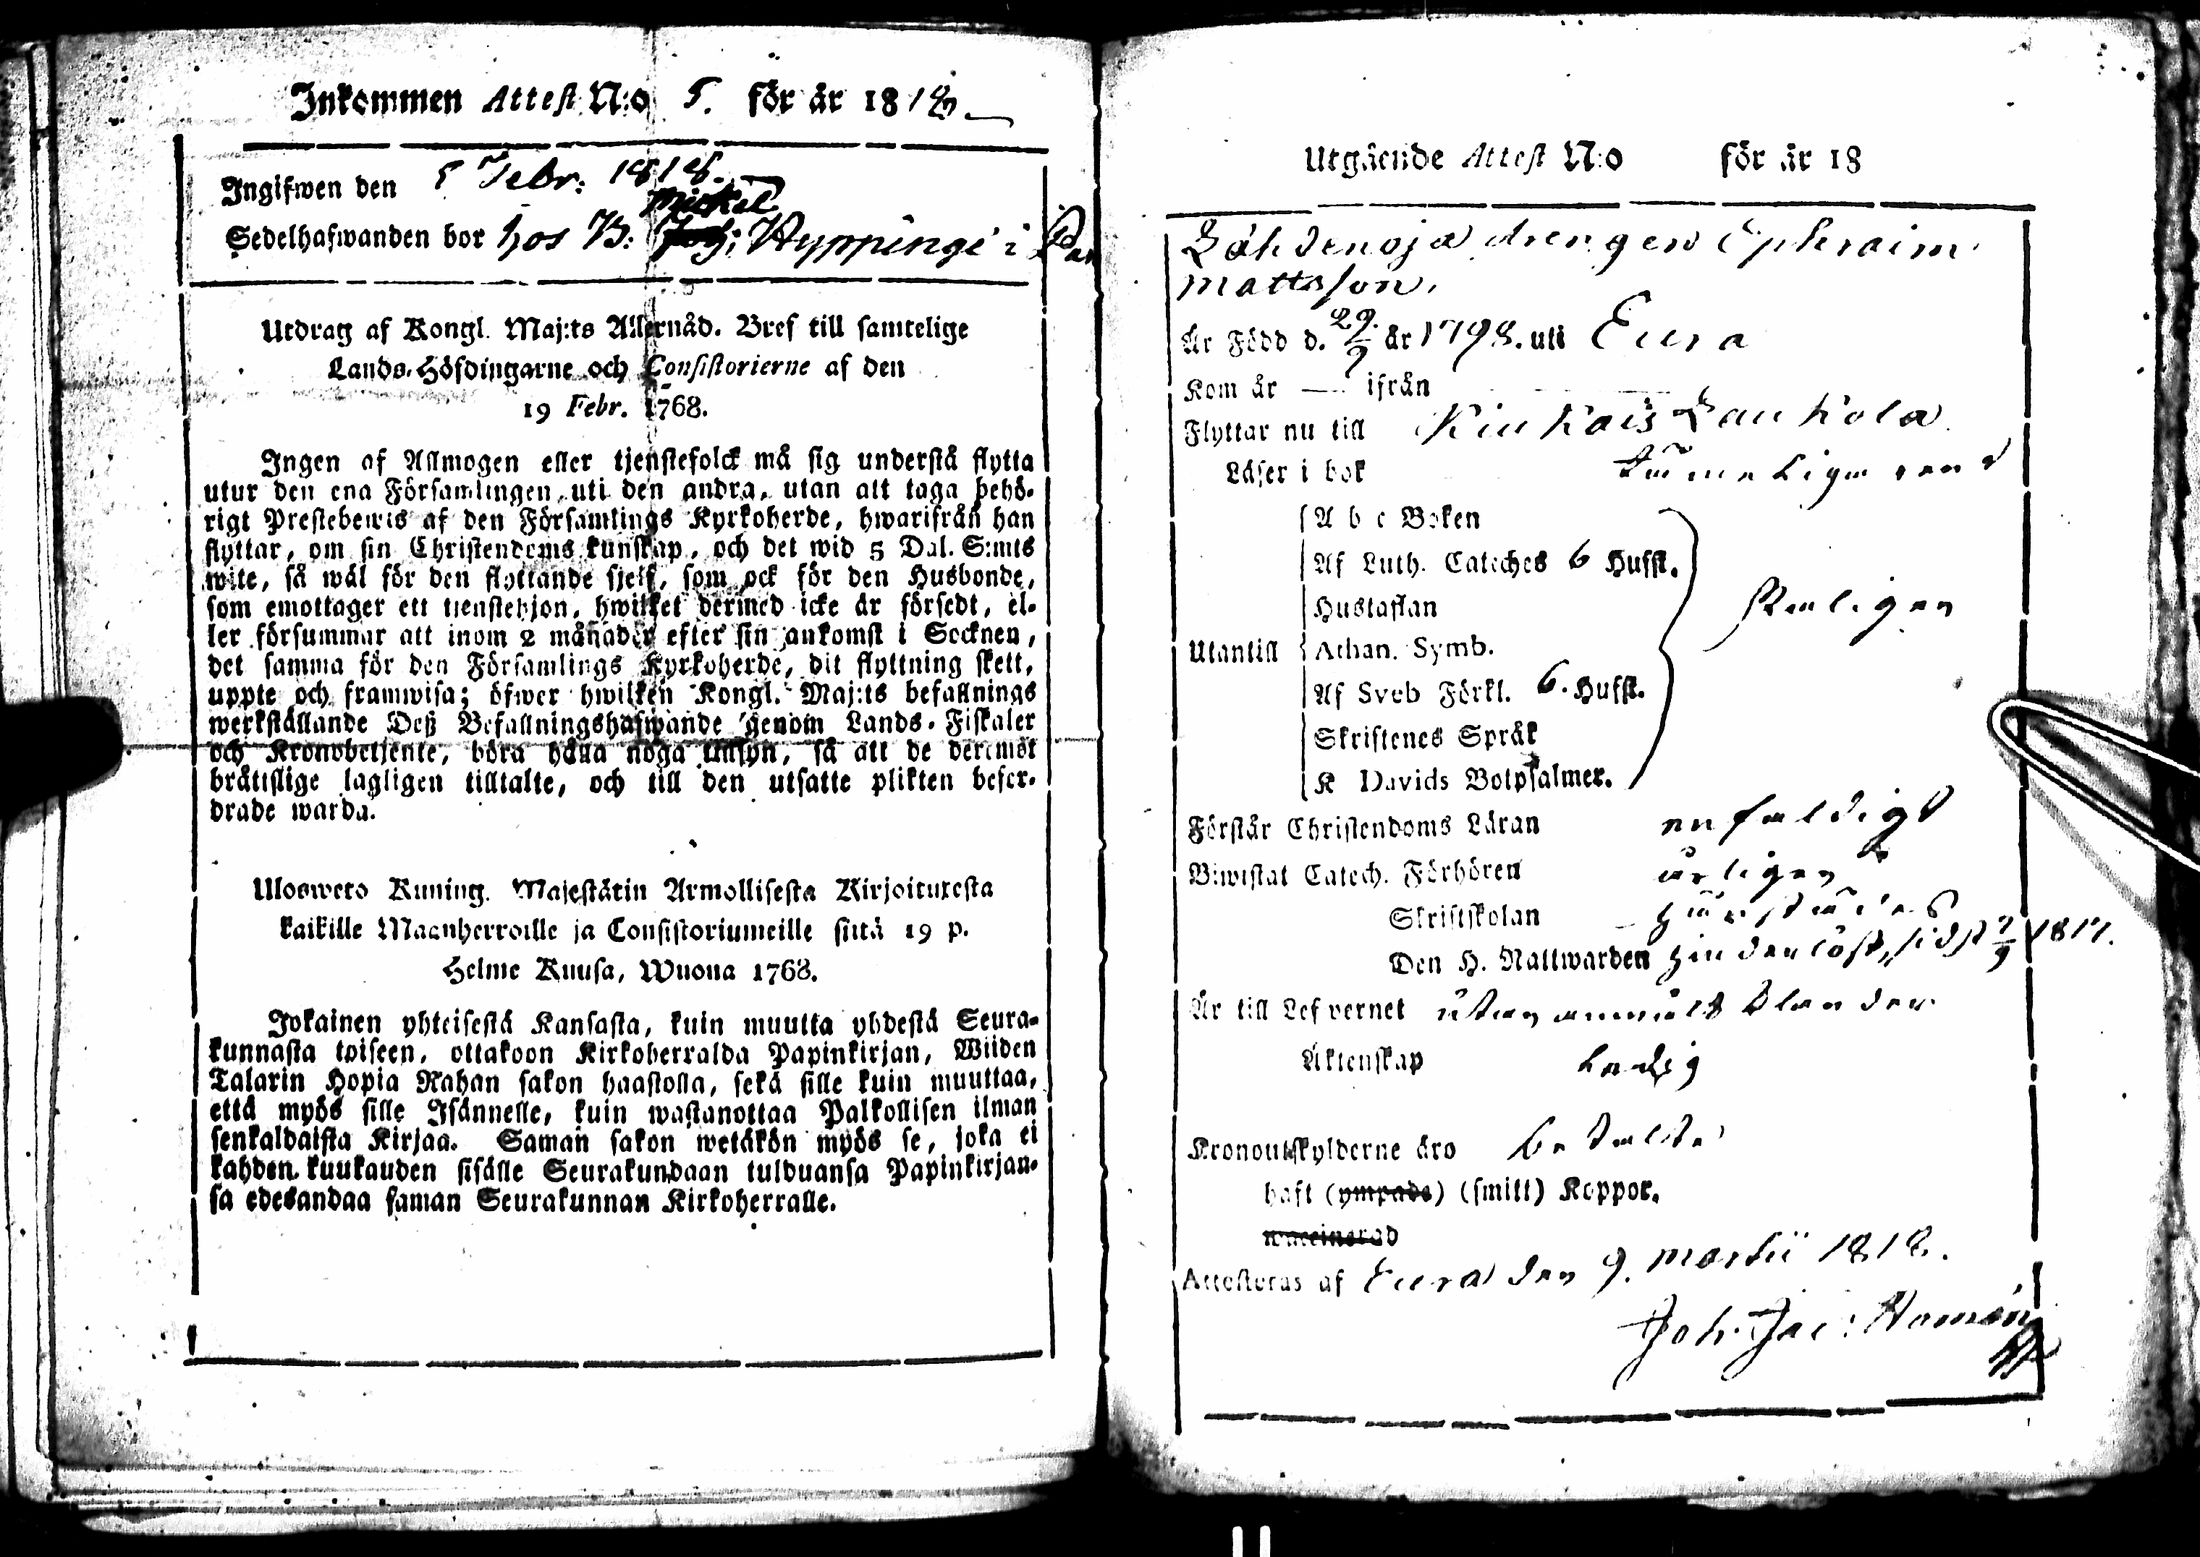 Inkommen Attest N:o 5. för år 1818
Ingifwen den 5 Febr: 1818.
Mickel
Sedelhafwanden bor hos B: Hyppingé i
Utdrag af Kongl. Maj:ts Allernåd. Bref till samtelige
Lands-Höfdingarne och Consistorierne af den
19 Febr. 1768.
Ingen af Allmogen eller tjenstefolck må sig understå flytta
utur den ena Församlingen uti den andra, utan att taga behö-
rigt Prestebewis af den Församlings Kyrkoherde, hwarifrån han
flyttar, om sin Christendoms kunskap, och det wid 5 Dal. S:mts
wite, så wäl för den flyttande sjelf, som ock för den Husbonde,
som emottager ett tjenstehjon, hwilket dermed icke är försedt, el-
ler försummar att inom 2 månader efter sin ankomst i Socknen,
det samma för den Församlings Kyrkoherde, dit flyttning skett,
uppte och framwisa; öfwer hwilken Kongl. Maj:ts befallnings
werkställande Deß Befallningshafwande genom Lands-Fiskaler
och Kronobetjente, böra hålla noga tillsyn, så att de deremot
bråttslige lagligen tilltalte, och till den utsatte plikten befor-
drade warda.
Ulosweto Kuning. Majestätin Armollisesta Kirjoituxesta
kaikille Maanherroille ja Consistoriumeille siitä 19 p.
Helme Kuusa, Wuonna 1768.
Jokainen yhteisestä Kansasta, kuin muutta yhdestä Seura-
kunnasta toiseen, ottakoon Kirkoherralda Papinkirjan, Wiiden
Talarin Hopia Rahan sakon haastolla, sekä sille kuin muuttaa,
että myös sille Isännelle, kuin wastanottaa Palkollisen ilman
senkaldaista Kirjaa. Saman sakon wetäkön myös se, joka ei
kahden kuukauden sisälle Seurakundaan tulduansa Papinkirjan-
sa edesandaa saman Seurakunnan Kirkoherralle.
Utgående Attest N:o för år 18
Lähdenoja drengen Ephraim
Mattsson,
Är Född d. 29/9 år 1798. uti Eura
Kom år — ifrån —
Flyttar nu till Kiukais Laukola
Läser i bok
Utantill
A b c Boken
Af Luth. Cateches 6 Hufst.
Hustaflan
Athan. Symb.
Af Sveb Förkl. 6. Hufst.
Skriftenes Språk
K Davids Botpsalmer.
Förstår Christendoms Läran enfaldigt
Biwistat Catech. Förhören årligen
Skriftskolan
Den H. Nattwarden sidst 7/9 1817.
Är till Lefvernet utan anmält klander
Äktenskap Ledig
Kronoutskylderne äro betalde
haft (ympade) (smitt) Koppor.
waccinerad
Attesteras af Eura den 9. Martii 1818.
Joh. Jac: Homén